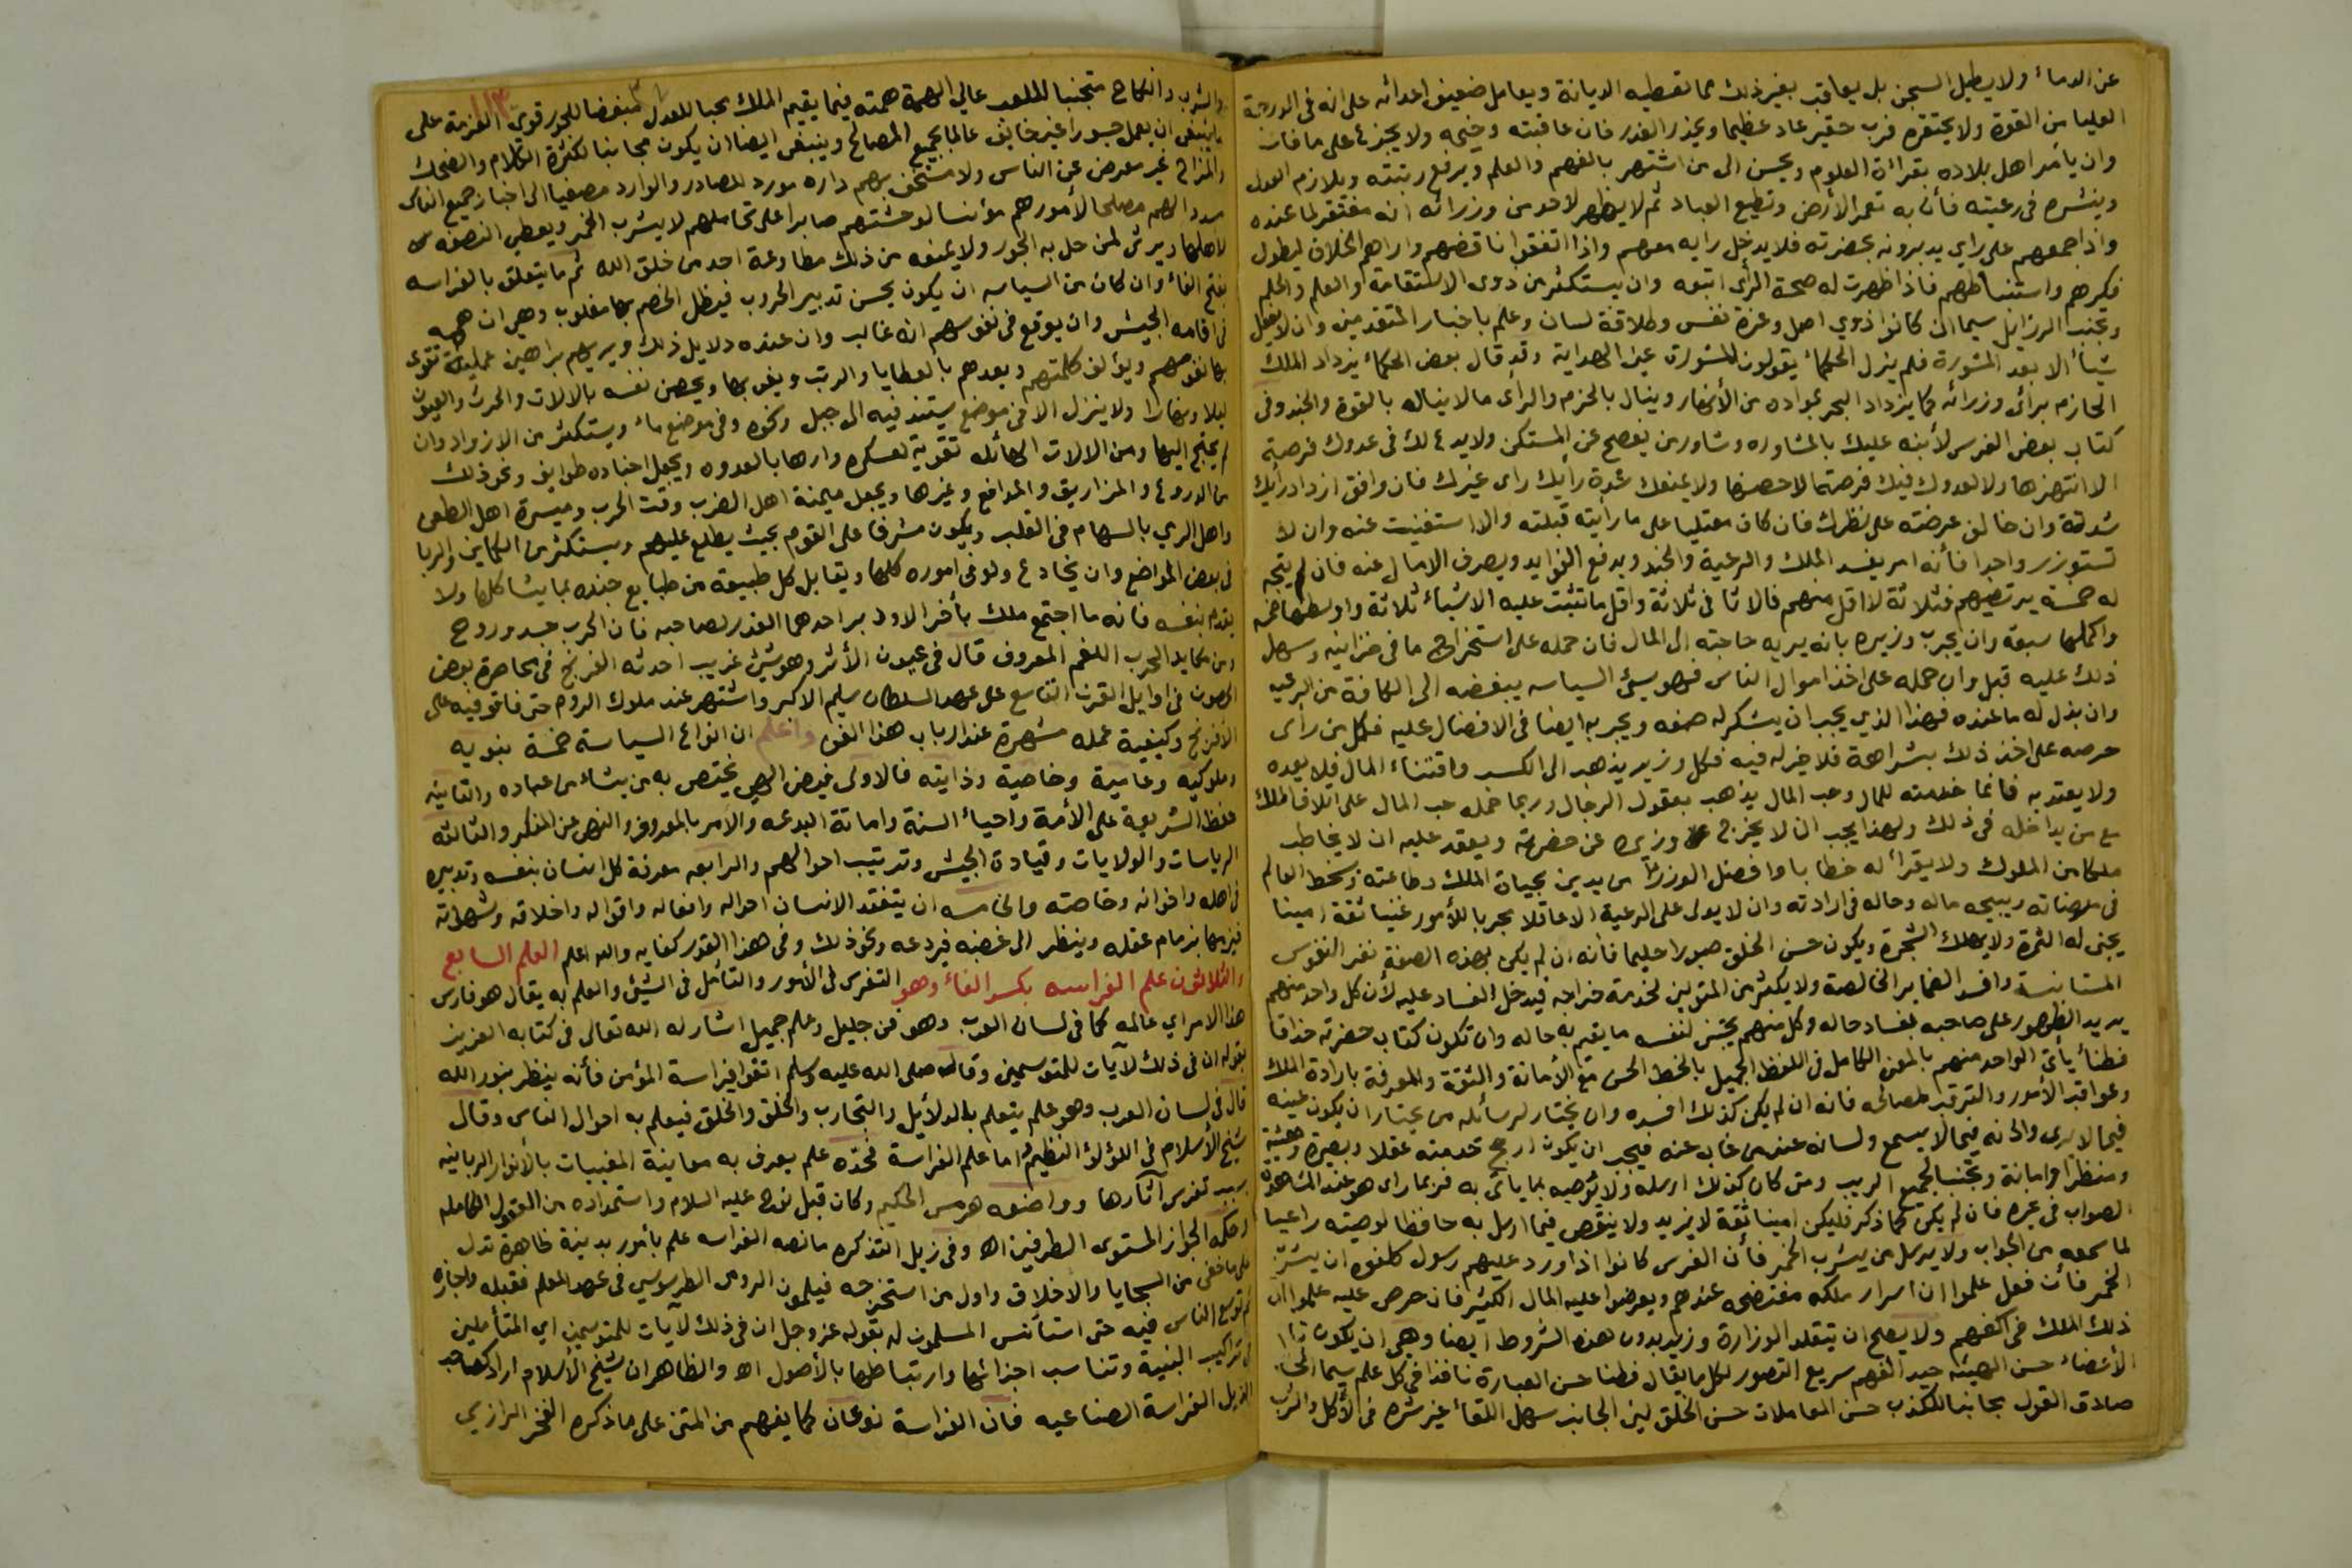 عن الدماء ولا يطيل السجن بل يعاقب بغير ذلك مما تقتضيه الديانة ويعامل ضعيف اعدائه على انه فى الدرجة
العليا من القوة ولا يحتقره فرب حقير عاد عظيما ويحذر الغدر فان عاقبته وخيمه ولا يجزع على ما فات
وان يأمر اهل بلاده بقرائة العلوم ويحسن الى من اشتهر بالفهم والعلم ويرفع رتبته ويلازم العدل
وينشره فى رعيته فأن به تعمر الأرض وتطيع العباد ثم لا يظهر لاحد من وزرائه انه مفتقر لما عنده
واذا جمعهم على راي يدبرونه بحضرته فلا يدخل رايه معهم واذا اتفقوا ناقضهم واراهم الخلاف ليطول
فكرهم واستنباطهم فاذا ظهرت له صحة الرأى اتبعه وان يستكثر من ذوى الاستقامة والعلم والحلم
وتجنب الرزايل سيما ان كانوا ذوي اصل وعزة نفس وطلاقة لسان وعلم باخبار المتقدمين وان لا يفعل
شيأ الا بعد المشورة فلم يزل الحكماء يقولون المشورة عين الهداية وقد قال بعض الحكماء يزداد الملك
الحازم برأى وزرائه كما يزداد البحر بمواده من الأنهار وينال بالحزم والرأى ما لا يناله بالقوة والجند وفى
كتاب بعض الفرس لأبنه عليك بالمشاوره وشاور من يفصح عن المستكن ولا يدع لك فى عدوك فرصة
الا انتهزها ولا لعدوك فيك فرصة الا حصنها ولا يمنعك شدة رأيك راى غيرك فان وافق ازداد رأيك
شدة وان خالف عرضته على نظرك فان كان معتليا على ما رأيته قبلته والا استغنيت عنه وان لا
تستوزر واحدا فأنه امر يفسد الملك والرعية والجند ويدفع الفوايد ويصرف الامال عنه فان لم يتجه
له خمسة يرتضيهم فثلاثة لا اقل منهم فالاثنا فى ثلاثة واقل ما تثبت عليه الاشياء ثلاثة واوسطها خمسة
واكملها سبعة وان يجرب وزيره بانه يريه حاجته الى المال فان حمله على استخراج ما فى خزانيه وسهل
ذلك عليه قبل وان حمله على اخذ اموال الناس فهو سيئ السياسه يبغضه الى الكافة من الرعيه
وان بذل له ما عنده فهذا الذي يجب ان يشكر له صنعه ويجربه ايضا فى الافضال عليه فكل من رأى
حرصه على اخذ ذلك بشراهة فلا خير له فيه فكل وزير يذهب الى الكسب واقتناء المال فلا يعده
ولا يعتد به فانما خدمته للمال وحب المال يذهب بعقول الرجال وربما حمله حب المال على اتلاف الملك
مع من يداخله فى ذلك ولهذا يجب ان لا يخرج وزيره عن حضرته ويعقد عليه ان لا يخاطب
ملكا من الملوك ولا يقرأ له خطابا وافضل الوزراء من يدين بحياة الملك وطاعته وسخط العالم
فى مرضاته ويبيحه ماله وحاله فى ارادته وان لا يولى على الرعية الا عاقلا مجربا للأمور غنيا ثقة امينا
يجنى له الثمرة ولا يهلك الشجرة ويكون حسن الخلق صبورا حليما فانه ان لم يكن بهذه الصفة نفر النفوس
المستانسة وافسد الضماير الخالصة ولا يكثر من المتولين لخدمة خراجه فيدخل الفساد عليه لأن كل واحد منهم
يريد الظهور على صاحبه بفساد حاله وكل منهم يجتنى لنفسه ما يقيم به حاله وان تكون كتاب حضرته حذاقا
فطنأ يأتى الواحد منهم بالمعنى الكامل فى اللفظ الجميل بالخط الحسن مع الأمانة والثقة والمعرفة بارادة الملك
وعواقب الأمور والترقب لمصالحه فانه ان لم يكن كذلك افسده وان يختار لرسائله من يختار ان يكون عينه
فيما لا يرى واذنه فيما لا يسمع ولسانه عند من غاب عنه فيجب ان يكون ارجح خدمته عقلا وبصيرة وهيئة
ومنظرا وامانة وتجنبا لجميع الريب ومتى كان كذلك ارسله ولا يوصيه بما يأتى به فربما راى هو عند المشاهدة
الصواب فى غيره فان لم يكن كما ذكر فليكن امينا ثقة لا يزيد ولا ينقص فيما ارسل به حافظا لوصيته راعيا
لما سمعه من الجواب ولا يرسل من يشرب الخمر فأن الفرس كانوا اذا ورد عليهم رسول كلفوه ان يشرب
الخمر فأن فعل علموا ان اسرار ملكه مفتضحه عندهم ويعرضوا عليه المال الكثير فان حرص عليه علموا ان
ذلك الملك فى اكفهم ولا يصلح ان يتقلد الوزارة وزير بدون هذه الشروط ايضا وهي ان يكون تام
الأعضاء حسن الهيئه جيد الفهم سريع التصور لكل ما يقال فطنا حسن العبارة نافذا فى كل علم سيما
صادق القول مجانبا للكذب حسن المعاملات حسن الخلق لين الجانب سهل اللقاء غير شره فى الأكل والشرب
والشرب والنكاح متجنبا للملعب عالي الهمة همته فيما يقيم الملك محبا للعدل مبغضا للجور قوى العزمة على
ما ينبغى ان يعمل جسورا غير خايف عالما بجميع المصالح وينبغى ايضا ان يكون مجانبا لكثرة الكلام والضحك
والمزاح غير معرض عن الناس ولا مستخف بهم داره مورد للصادر والوارد مصغيا الى اخبار جميع الناس
مصلحا لأمورهم مؤنسا لوحشتهم صابرا على تحاملهم لا يشرب الخمر ويعطى النصفه من
لأهلها ويرثى لمن حل به الجور ولا يمنعه من ذلك مطاوعة احد من خلق الله ثم ما يتعلق بالفراسه
بفتح الفاء وان كان من السياسه ان يكون يحسن تدبير الحروب فيظل الخصم بها مغلوب وهي ان
فى اقامه الجيش وان يوقع فى نفوسهم انه غالب وان عنده دلايل ذلك ويريهم براهين عملية تقوى
بها نفوسهم ويؤلف كلمتهم ويعدهم بالعطايا والرتب ويفى بها ويحصن نفسه بالالات والحرث والعيون
ليلا ونهارا ولا ينزل الا فى موضع يستند فيه الى جبل ونحوه وفى موضع ماء ويستكثر من الازواد وان
لم يحتج اليها ومن الالات الهائله تقوية لعسكره وارهابا لعدوه ويجعل اجناده طوايف ونحو ذلك
من الدروع والمزاريق والمدافع وغيرها ويجعل ميمنة اهل الضرب وقت الحرب وميسرة اهل الطعن
واهل الرمي بالسهام فى القلب ويكون مشرفا على القوم بحيث يطلع عليهم ويستكثر من الكماين والربا
فى بعض المواضع وان يخادع ولو فى اموره كلها ويقابل كل طبيعة من طبايع جنده بما يشاكلها ولا
يقدم بنفسه فانه ما اجتمع ملك بأخر الا ودبر احدهما الغدر لصاحبه فان الحرب جسد وروح
ومن مكايد الحرب اللغم المعروف قال فى عيون الأثر وهو شئ غريب احدثه الفرنج فى محاصرة بعض
الحصون فى اوايل القرن التاسع على عهد السلطان سليم الاكبر واشتهر عند ملوك الروم حتى فاقو فيه على
الأفرنج وكيفية عمله مشهرة عند ارباب هذا الفن واعلم ان انواع السياسة خمسة نبويه
وملوكيه وعامية وخاصية وذاتيه فالاولى فيض الهي يختص به من يشاء من عباده والثانيه
حفظ الشريعة على الأمة واحياء السنة واماتة البدعه والأمر بالمعروف والنهى عن المنكر والثالثه
الرياسات والولايات وقيادة الجيش وترتيب احوالهم والرابعه معرفة كل انسان بنفسه وتدبيره
فى اهله واخوانه وخاصته والخامسه ان يتفقد الانسان احواله وافعاله واقواله واخلاقه وشهواته
فيزمها بزمام عقله وينظر الى غضبه فيردعه ونحو ذلك وفى هذا القدر كفايه والله اعلم العلم السابع
والثلاثون علم الفراسه بكسر الفاء وهو التفرس فى الأمور والتأمل فى الشئ والعلم به يقال هو فارس
هذا الامر اي عالمه كما فى لسان العرب وهو فن جليل وعلم جميل اشار له الله تعالى فى كتابه العزيز
بقوله ان فى ذلك لآيات للمتوسمين وقال صلى الله عليه وسلم اتقوا فراسة المؤمن فأنه ينظر بنور الله
قال فى لسان العرب وهو علم يتعلم بالدلأيل والتجارب والخلق والخلق فيعلم به احوال الناس وقال
شيخ الأسلام فى اللؤلؤ النظيم اما علم الفراسة فحده علم يعرف به معاينة المغيبات بالأنوار الربانيه
بسبب تفرس آثارها وواضعه هرمس الحكيم وكان قبل نوح عليه السلام واستمداده من العقول الكامله
وحكمه الجواز المستوى الطرفين اه وفى زيل التذكره ما نصه الفراسه علم بأمور بدنية ظاهرة تدل
على ما خفى من السجايا والاخلاق واول من استخرجه فيلمون الرومى الطرسوسي فى عهد المعلم فقبله واجازه
ثم توسع الناس فيه حتى استأنس المسلمون له بقوله عز وجل ان فى ذلك لآيات للمتوسمين اي المتأملين
فى تراكيب البنية وتناسب اجزائها وارتباطها بالأصول اه والظاهر ان شيخ الأسلام اراد كصاحب
الذيل الفراسة الصناعيه فان الفراسة نوعان كما يفهم من المتن على ما ذكره الفخر الرازي